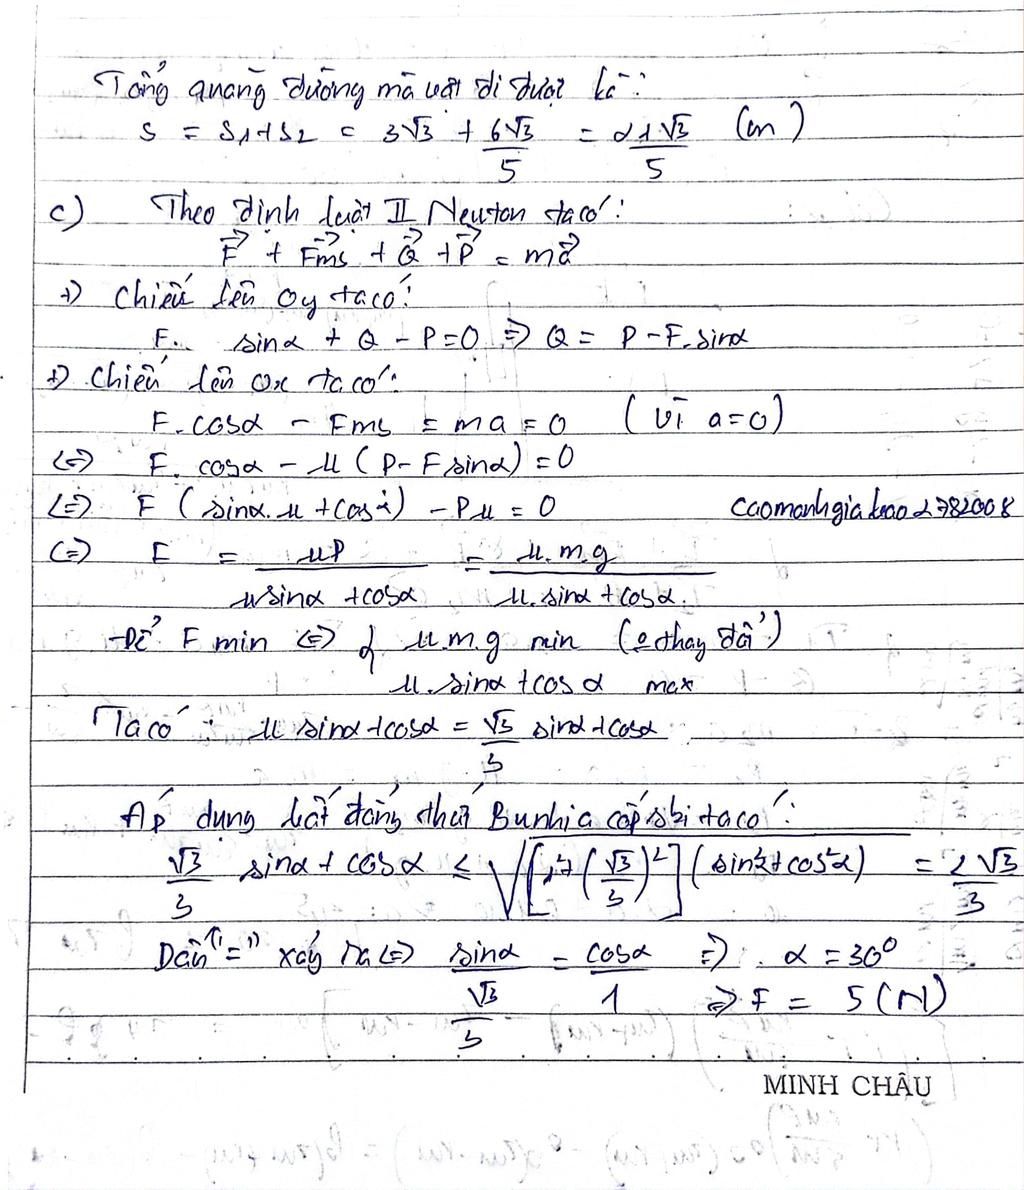 Tổng quãng đường mà vật đi được là:
S = S1+S2 = 3√3 + 6√3/5 = 21√3/5 (m)
c) Theo định luật II Newton ta có:
F⃗ + F⃗ms + Q⃗ + P⃗ = ma⃗
+) Chiếu lên Oy ta có:
F. sinα + Q - P=0 => Q = P-F.sinα
+) Chiếu lên Ox ta có:
F.cosα - Fms = ma = 0 (vì a=0)
<=> F. cosα - μ(P-Fsinα)=0
<=> F (sinα.μ +cosα) -Pμ = 0 caomanhgiabao2782008
<=> F = μP/(μsinα +cosα) = μ.m.g/(μ.sinα +cosα.)
-Để F min <=> { μ.m.g min (o thay đổi)
μ.sinα +cosα max
Ta có: μ sinα+cosα = √3/3 sinα+cosα
Áp dụng bất đẳng thức Bunhiacopski ta có:
√3/3 sinα + cosα ≤ √([1²+(√3/3)²](sin²α+cos²α)) = 2√3/3
Dấu "=" xảy ra <=> sinα/(√3/3) = cosα/1 => α = 30°
=> F = 5 (N)
MINH CHÂU